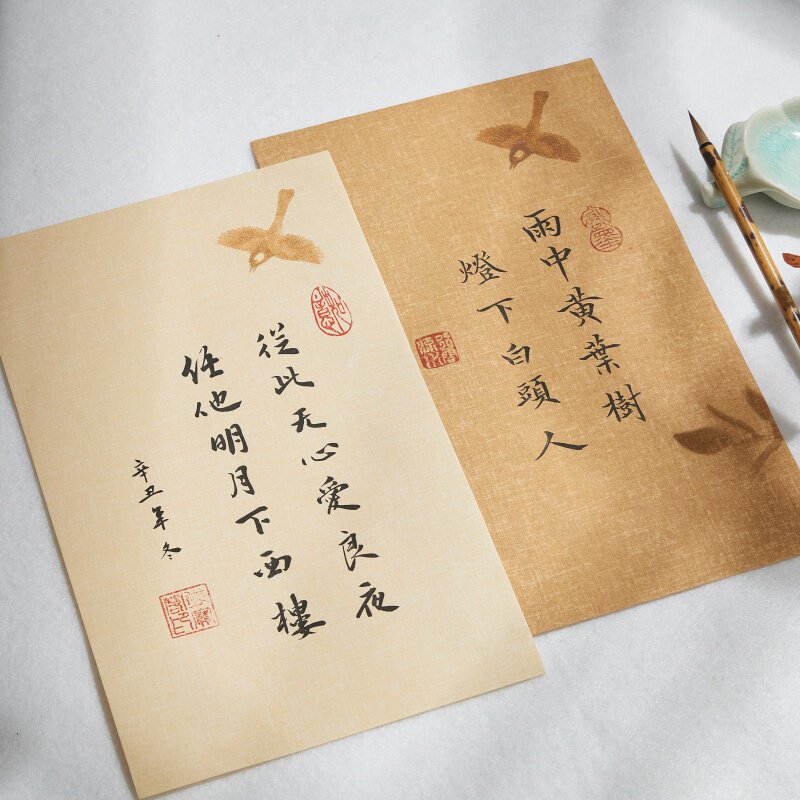 從此无心愛良夜
任他明月下西樓
辛丑年冬
雨中黄葉樹
燈下白頭人